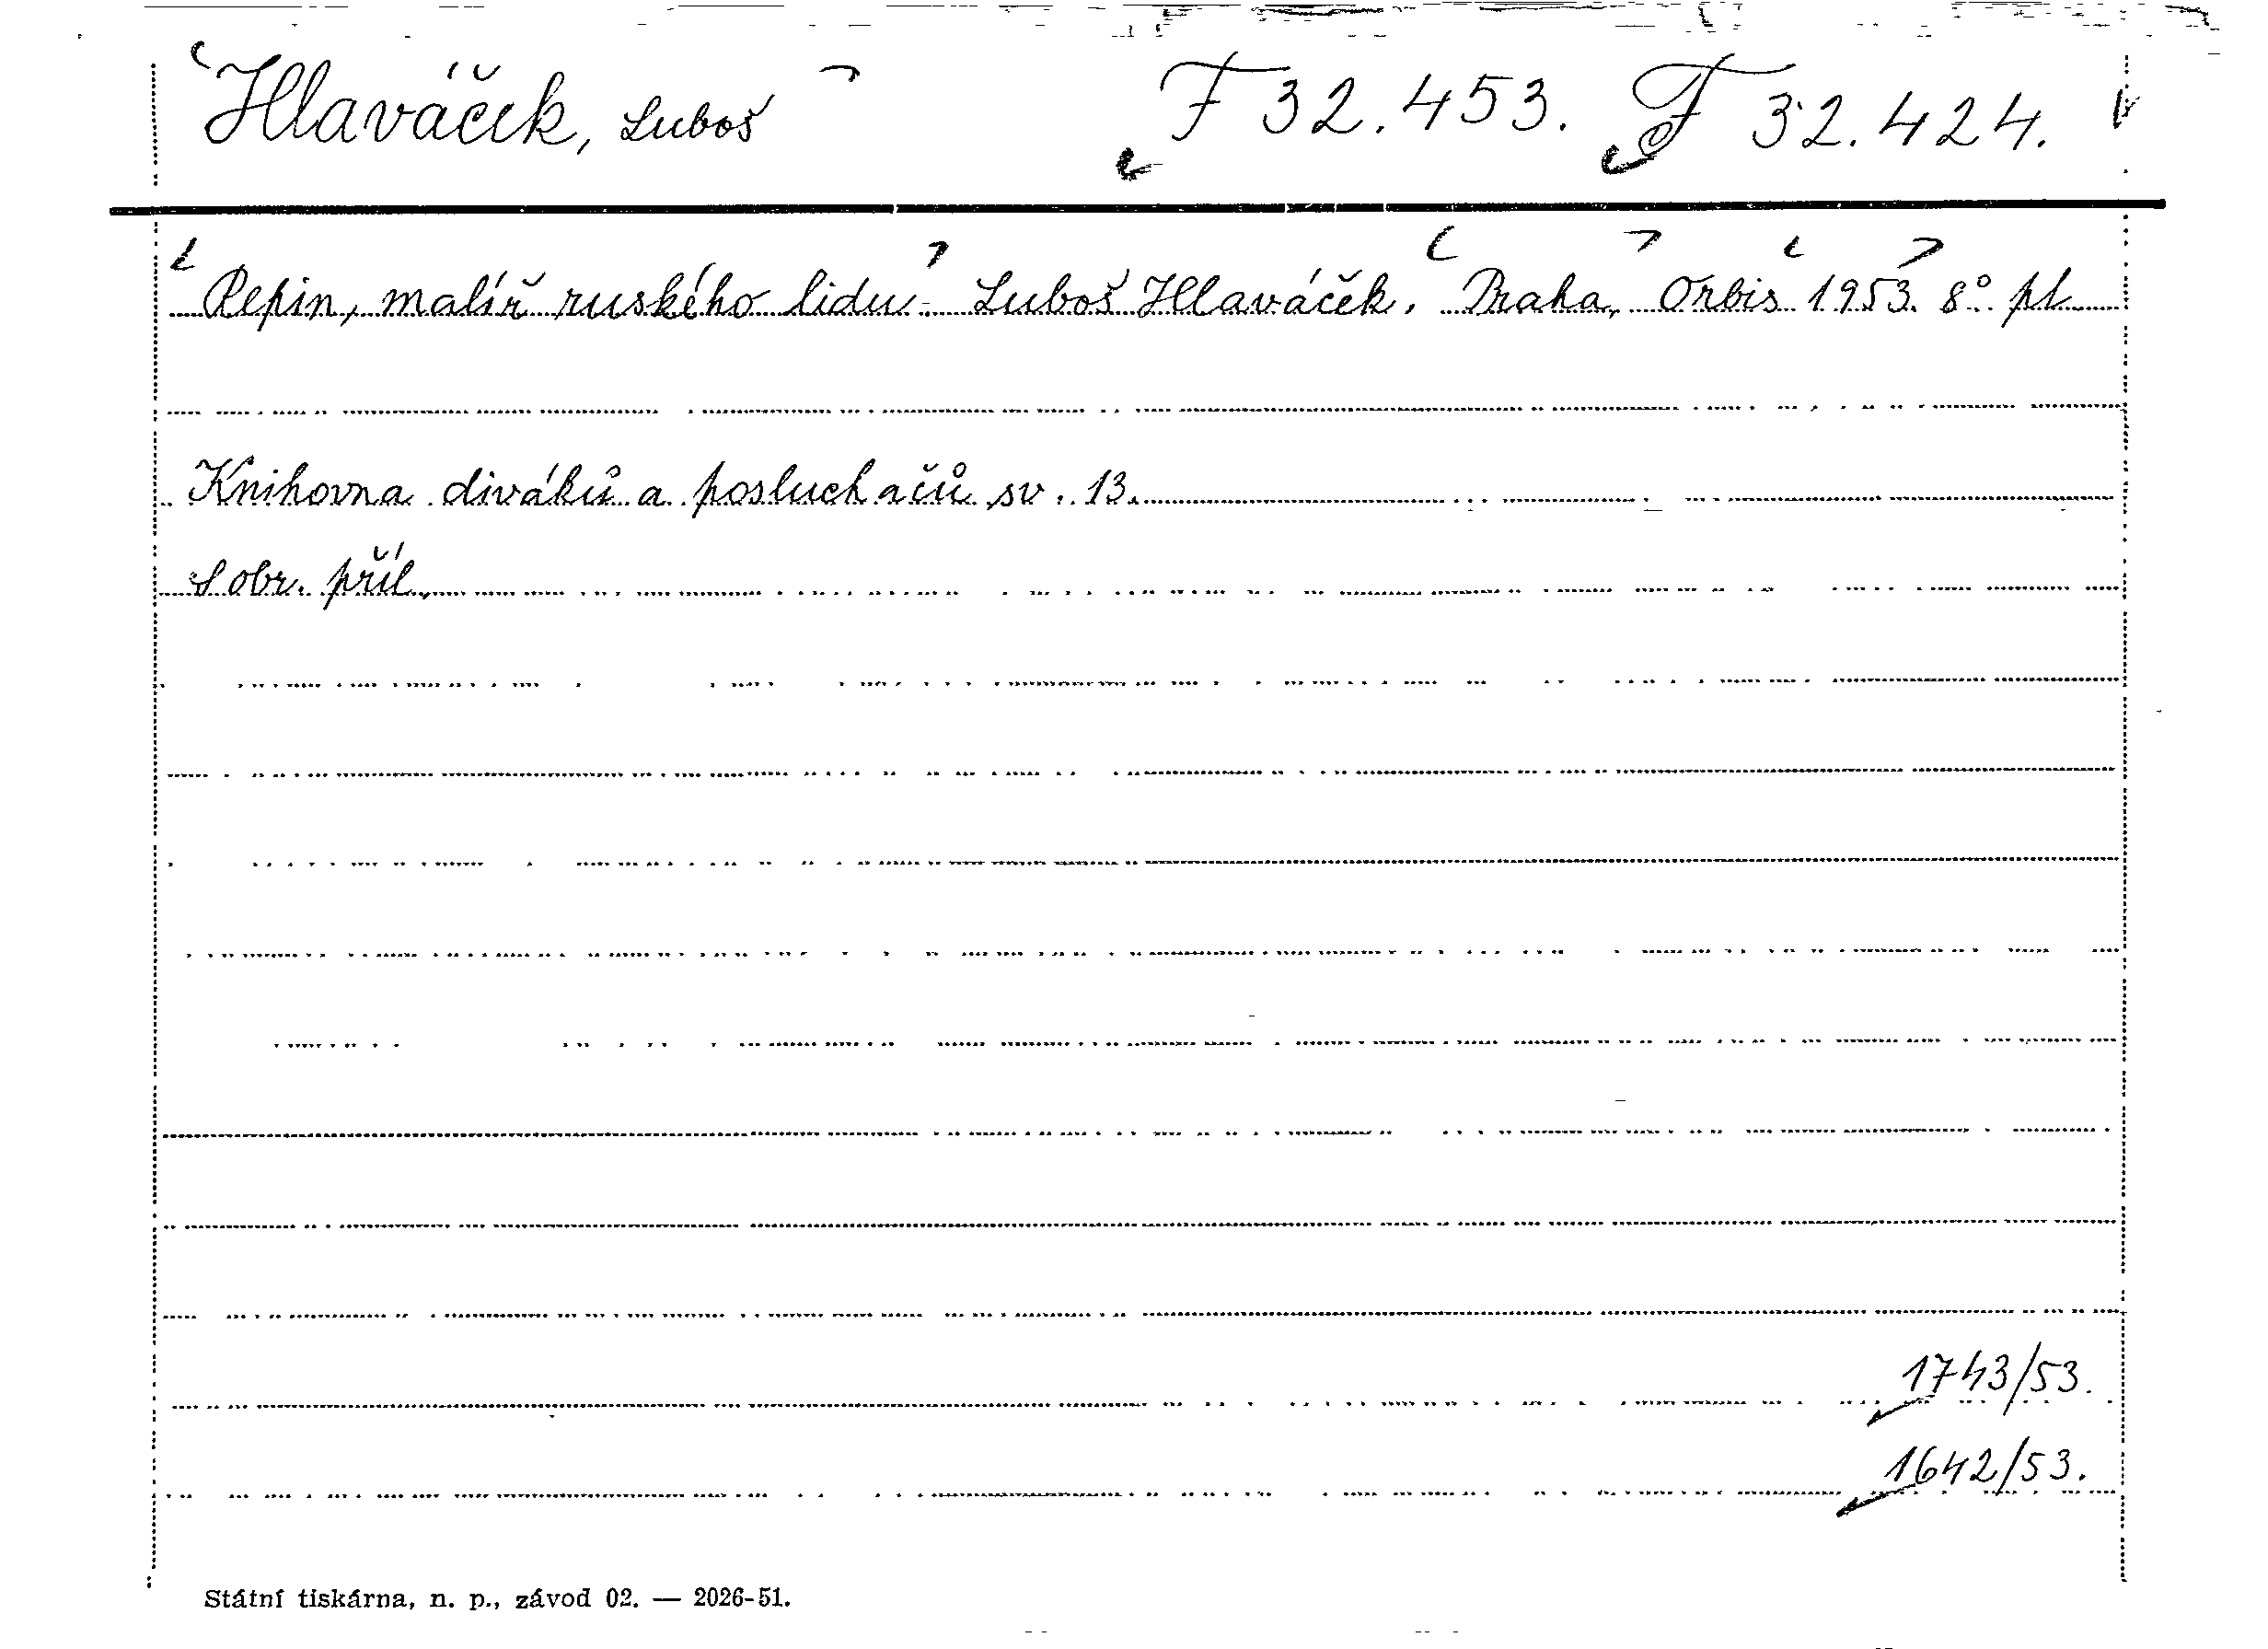 Hlaváček, Luboš F 32.453. F 32.424.
Repin, malíř ruského lidu. Luboš Hlaváček. Praha, Orbis 1953. 8° pl
Knihovna diváků a posluchačů sv. 13.
S obr. příl.
1743/53.
1642/53.
Státní tiskárna, n. p., závod 02. — 2026-51.